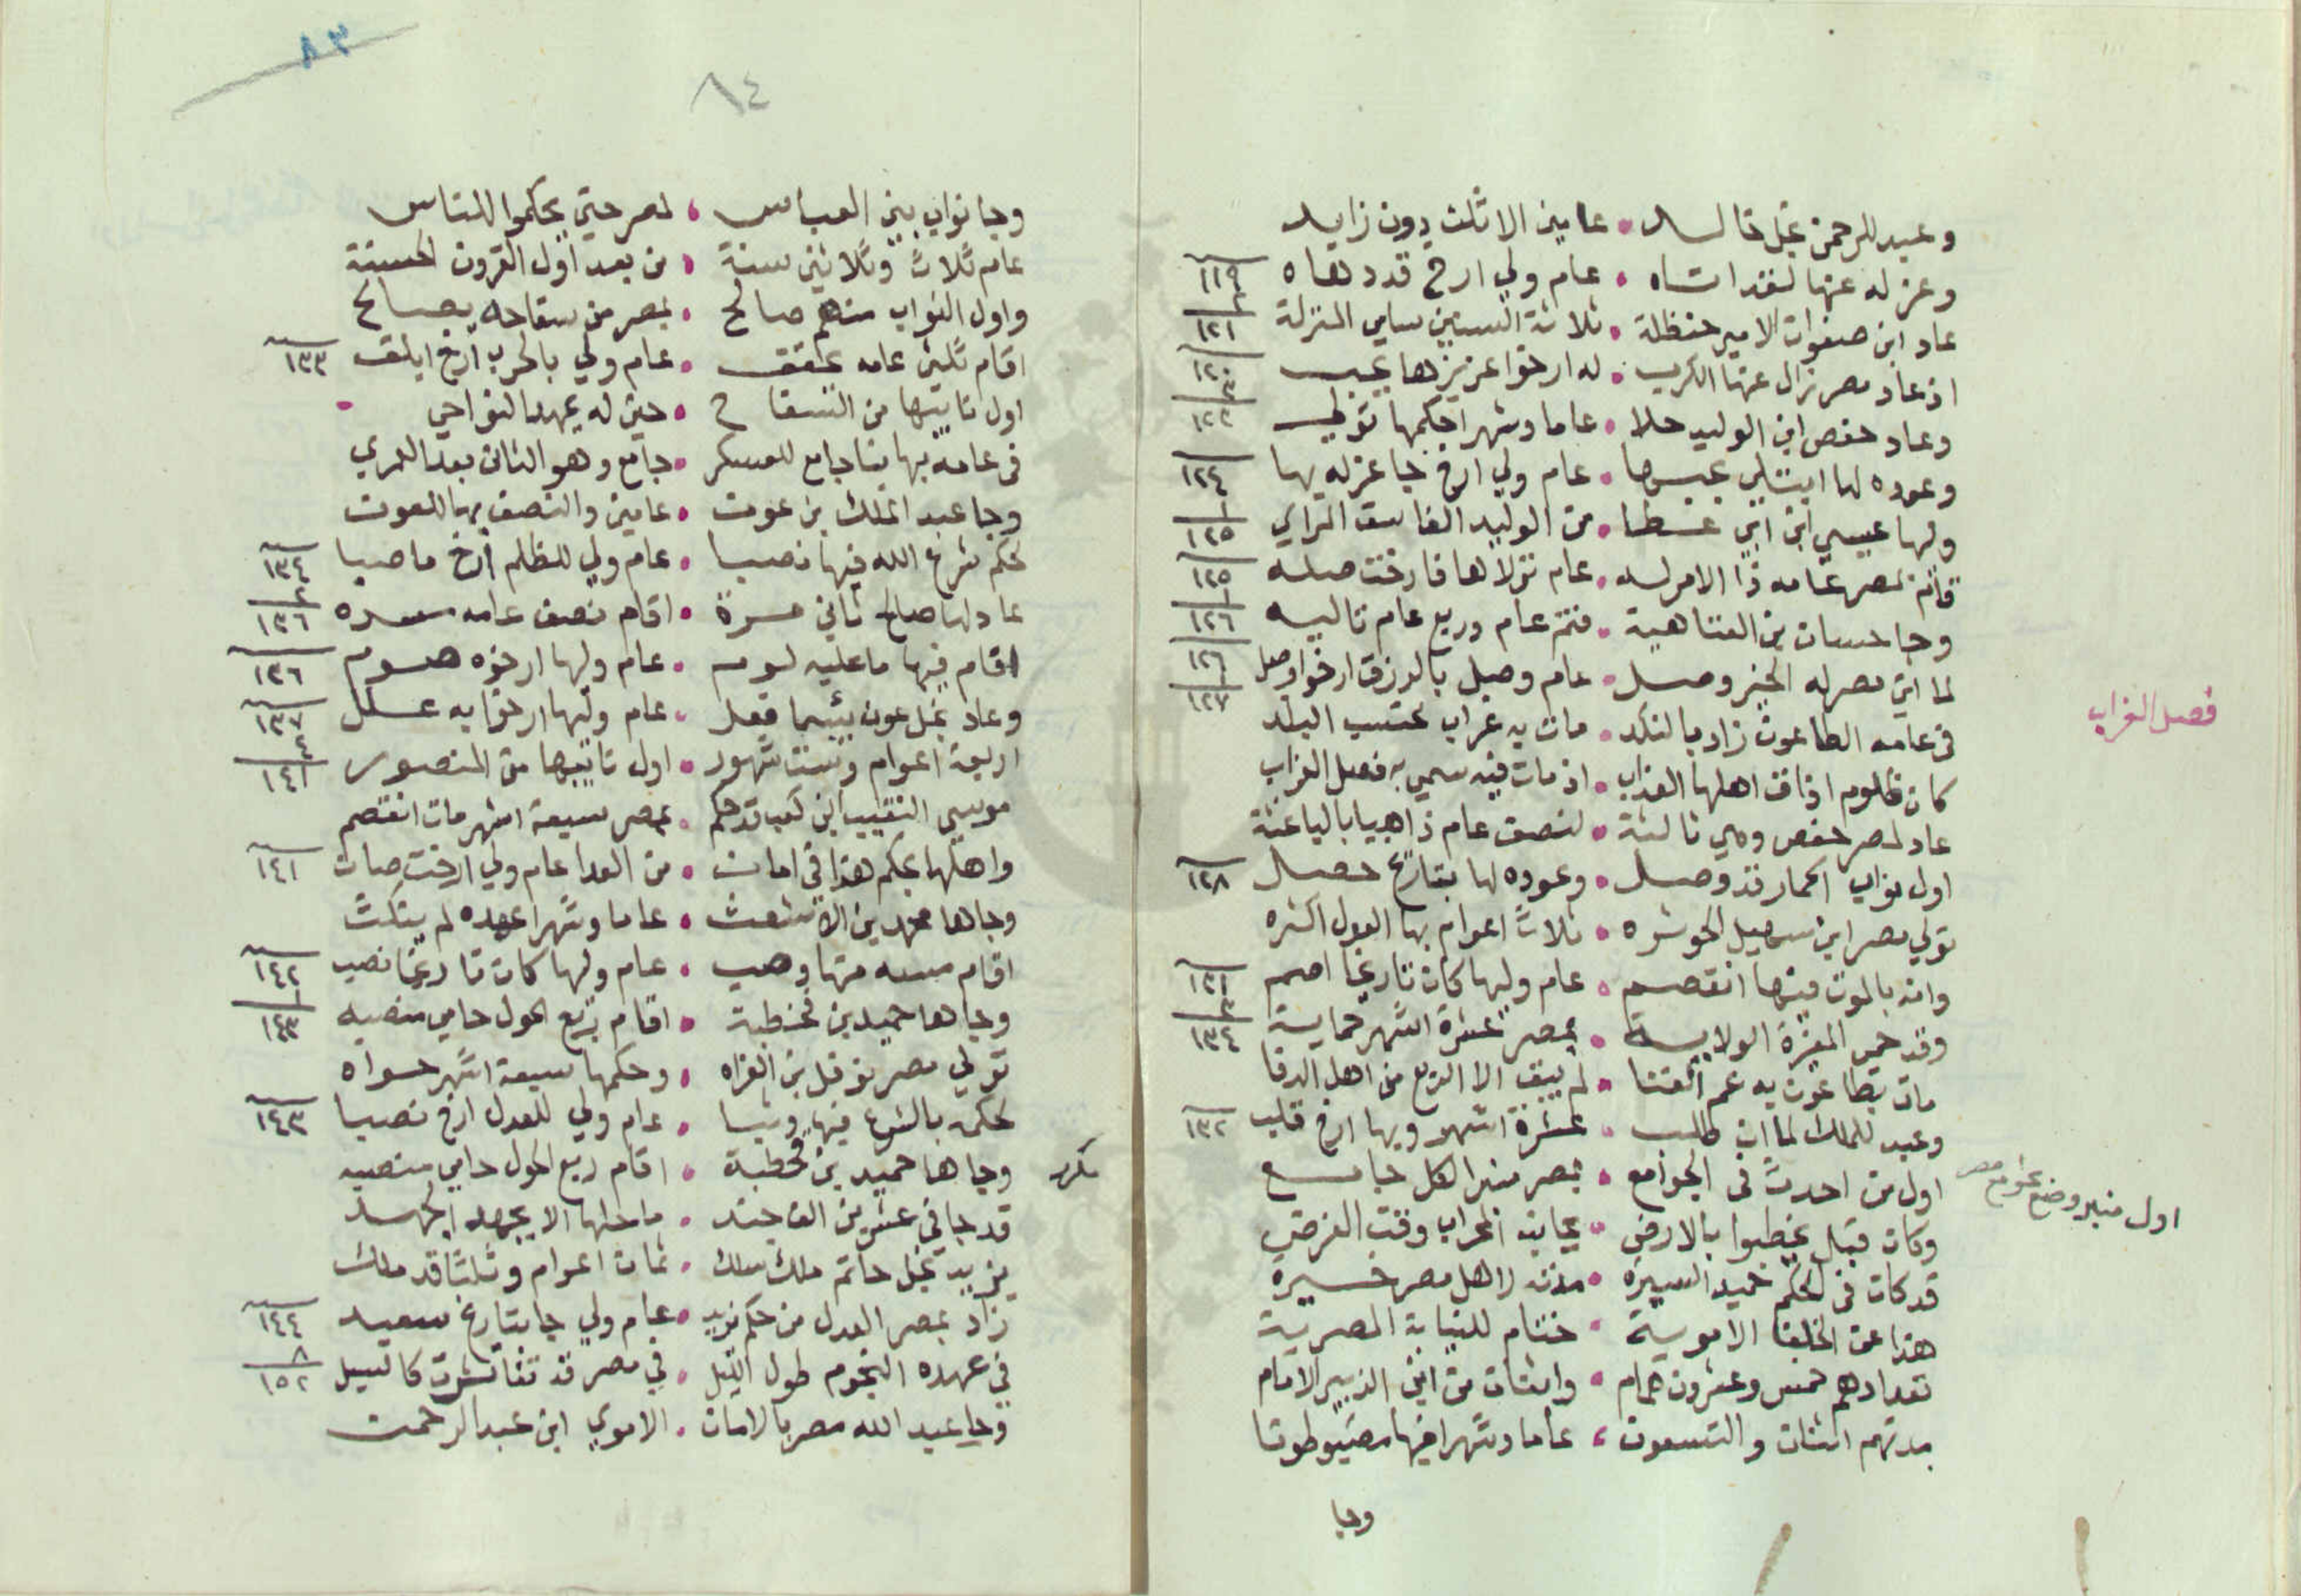 وعبد الرحمن نجل خالد • عامين الا ثلث دون زايد
وعزله عنها لفقد اتساه • عام ولي ارخ قدد هاه ١١٩
عاد ابن صفوان الامير حنظلة • ثلاثة السنين سامي المنزلة ١٢١
اذ عاد مصر زال عنها الكرب • له ارخوا عزيزها يجب
وعاد حفص ابن الوليد حلا • عاما وشهرا حكمها تولى
وعوده لها ابتلي بحبسها • عام ولي ارخ جا عزله بها ١٢٤
وليها عيسي ابن ابي عطا • من الوليد الفاسق الراي ١٢٥
قام لمصر عامه ذا الامر له • عام تولاها فارخت صله ١٢٥
وجا حسان بن العتاهية • فتم عام وربع عام تاليه ١٢٦
لما اتي مصر له الخير وصل • عام وصيل بالرزق ارخوا وصل
في عامه الطاعون زاد بالنكد • مات به غراب محتسب البلد
فصل الغراب
كان ظلوم اذاق اهلها العذاب • اذ مات فيه سمي به فصل الغراب
عاد لمصر حفص وهي ثالثة • لنصف عام ذاهبيا بالياعثة
اول نواب الحمار قد وصل • وعوده لها بتاريخ حصل ١٢٨
تولي مصر ابن سهيل الحوشره • ثلاث اعوام بها العول اكثره
وانه بالموت فيها انقصم • عام وليها كان تاريخا اصم ١٣١
وقد حمي المغيرة الولاية • بمصر عشرة اشهر حماية
مات بطاعون به عم الفنا • لم يبق الا الربع من اهل الدفا
وعبد للملك لما ان طلب • عشرة اشهر وبها ارخ قلب ١٣٢
اول من احدث في الجوامع • بمصر منبرا لكل جامع
اول منبر وضع بجوامع مصر
وكان قبل يخطبوا بالارض • بجانب المحراب وقت الفرض
قد كان في الحكم حميد السيرة • مدته لاهل مصر خيرة
هذا عن الخلفا الاموية • ختام للنيابة المصرية
تعدادهم خمس وعشرون همام • واثنان من ابن الزبير الامام
مدتهم اثنان والتسعون • عاما وشهرا فيها مضبوطونا
وجا
٨٤
٨٣
وجا نواب بني العباس • لمصر حتي يحكموا للناس
عام ثلاث وثلاثين سنة • من بعد اول القرون الحسنة
واول النواب منهم صالح • بمصر من سفاحه يصالح
اقام ثلثي عامه عقق • عام ولي بالحرب ارخ ابلق ١٣٣
اول نائبها من السفاح • حين له يمهد النواحي
في عامه بها بنا جامع للعسكر • جامع وهو الثاني بعد العمري
وجا عبد الملك بن عون • عامين والنصف بها للعون
لحكم شرع الله فيها نصبا • عام ولي للظلم ارخ ما صبا ١٣٤
عاد لها صالح ثاني مرة • اقام نصف عامه ١٣٦
اقام فيها ما عليه لوم • عام وليها ارخوه هوم ١٣٦
وعاد نجل عون بئسما فعل • عام وليها ارخوا به عسل ١٣٧
اربعة اعوام وست شهور • اول نائبها من المنصور ١٤١
موسي النقيب ابن كعب قد حكم • بمصر سبعة اشهر مات انقصم
واهلها بحكم هذا في امان • من العدا عام ولي ارخت صان ١٤١
وجاها محمد بن الاشعث • عاما وشهرا عهده لم ينكث
اقام مسه منها وهب • عام وليها كان تاريخا نصب ١٤٢
وجاها حميد بن قحطبة • اقام ربع الحول حامي منصبه ١٤٣
تولي مصر نوفل بن الفراه • وحكمها سبعة اشهر حواه
لحكمه بالشرع فيها وثبا • عام ولي للعدل ارخ نصبا ١٤٣
مكرر
وجاها حميد بن قحطبة • اقام ربع الحول حامي منصبه
قد جا في عشرين الف جند • ما حلها الا بجهد الجهد
يزيد نجل حاتم ملك سلك • ثمان اعوام وثلثا قد ملك
زاد بمصر العدل من حكم يزيد • عام ولي جا بتاريخ سعيد ١٤٤
في عهده النجوم طول الليل • في مصر قد تناثرت كالسيل ١٥٢
وجا عبد الله مصر بالامان • الاموي ابن عبد الرحمن